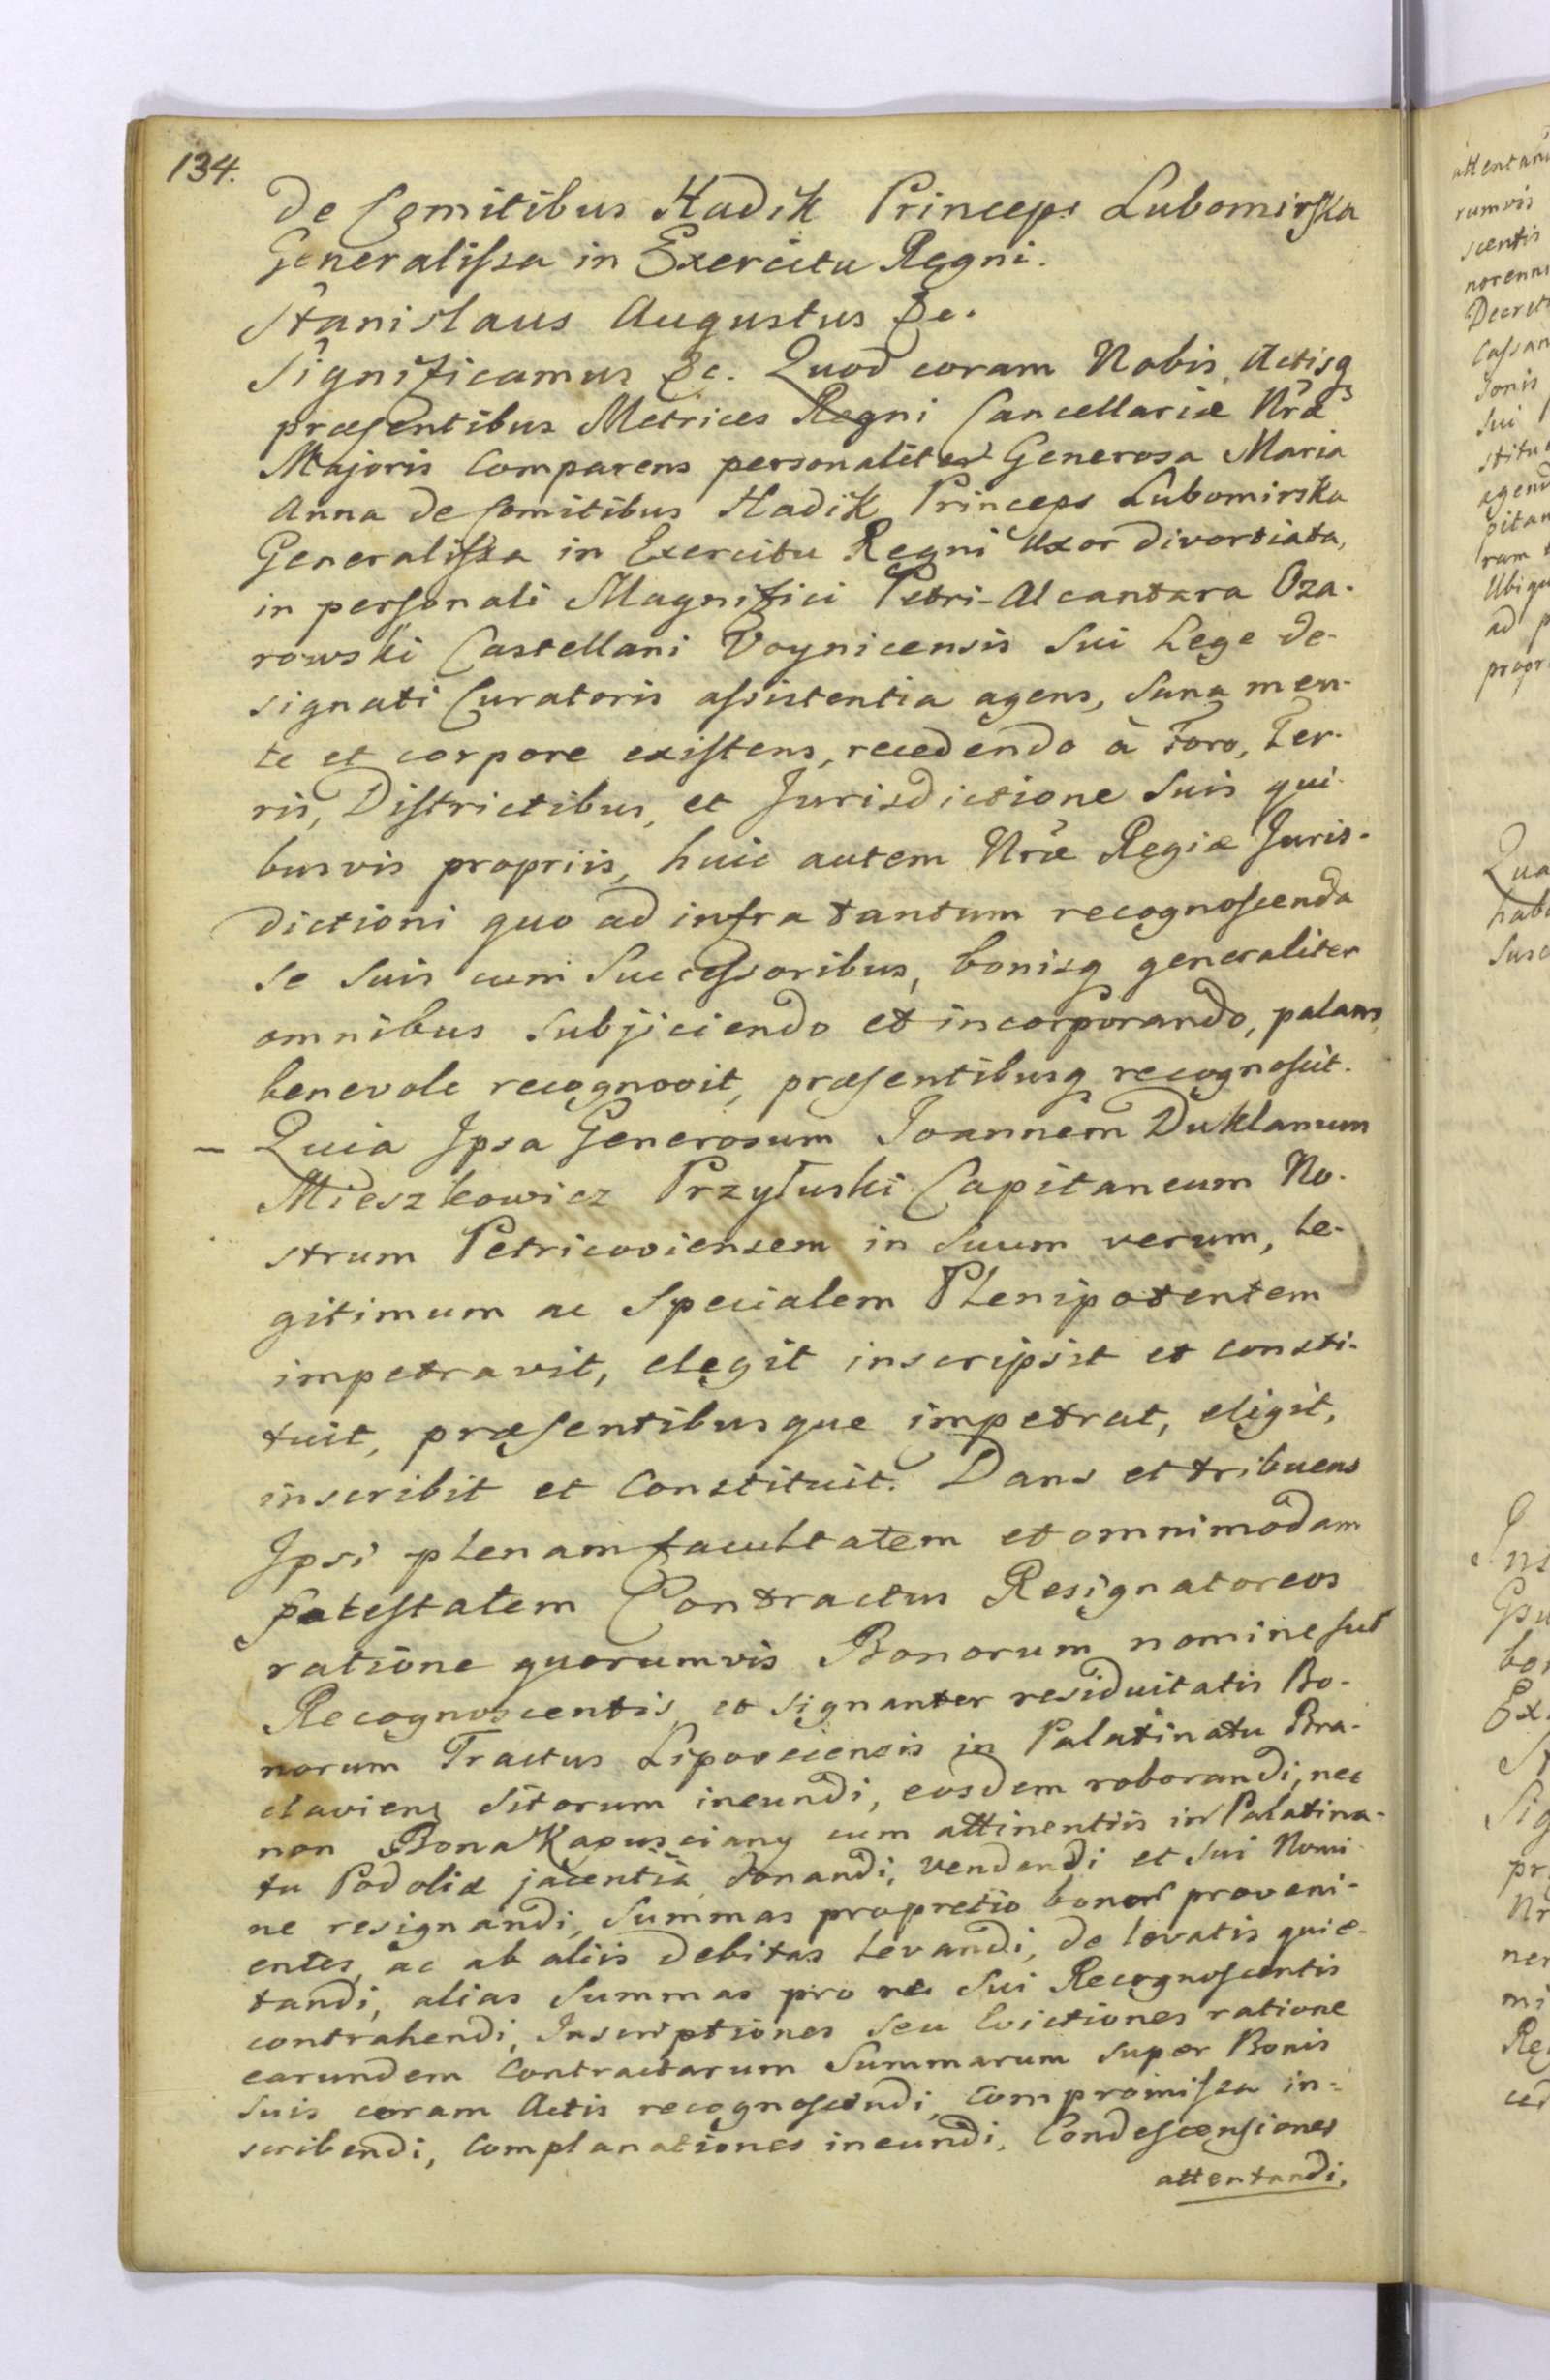 134.
de Comitibus Hadik Princeps Lubomirska
Generalissa in Exercitu Regni.
Stanislaus Augustus &c.
Significamus &c. Quod coram Nobis, Actisq
præsentibus Metrices Regni Cancellariæ Nræ
Majoris Comparens personaliter Generosa Maria
Anna de Comitibus Hadik Princeps Lubomirska
Generalissa in Exercitu Regni Uxor divortiata,
in personali Magnifici Petri-Alcantara Oza-
rowski Castellani Voynicensis Sui Lege de-
signati Curatoris assistentia agens, Sana men-
te et corpore existens, recedendo à Foro, Ter-
ris, Districtibus, et Jurisdictione Suis qui-
busvis propriis, huic autem Nræ Regiæ Juris-
dictioni quo ad infra tantum recognoscenda
se Suis cum Successoribus, bonisq generaliter
omnibus Subjiciendo et incorporando, palam,
benevole recognovit, præsentibusq recognoscit.
– Quia Ipsa Generosum Joannem Duklanum
Mieszkowicz Przyłuski Capitaneum No-
strum Petricoviensem in Suum verum, Le-
gitimum ac Specialem Plenipotentem
impetravit, elegit inscripsit et consti-
tuit, præsentibusque impetrat, eligit,
inscribit et Constituit. Dans et tribuens
Ipsi plenam facultatem et omnimodam
potestatem Contractus Resignatoreos
ratione quorumvis Bonorum nomine sui
Recognoscentis, et signanter residuitatis Bo-
norum Tractus Lipoveciensis in Palatinatu Bra-
claviens Sitorum ineundi, eosdem roborandi, nec
non Bona Kapusciany cum attinentiis in Palatina-
tu Podoliæ jacentia, donandi, vendendi et Sui Nomi-
ne resignandi, Summas pro pretio bonor proveni-
entes, ac ab aliis debitas levandi, de levatis quie-
tandi, alias Summas pro re Sui Recognoscentis
contrahendi, Inscriptiones seu Evictiones ratione
earundem Contractarum Summarum super Bonis
Suis coram Actis recognoscendi, Compromissa in-
scribendi, Complanationes ineundi, Condescensiones
attentandi,